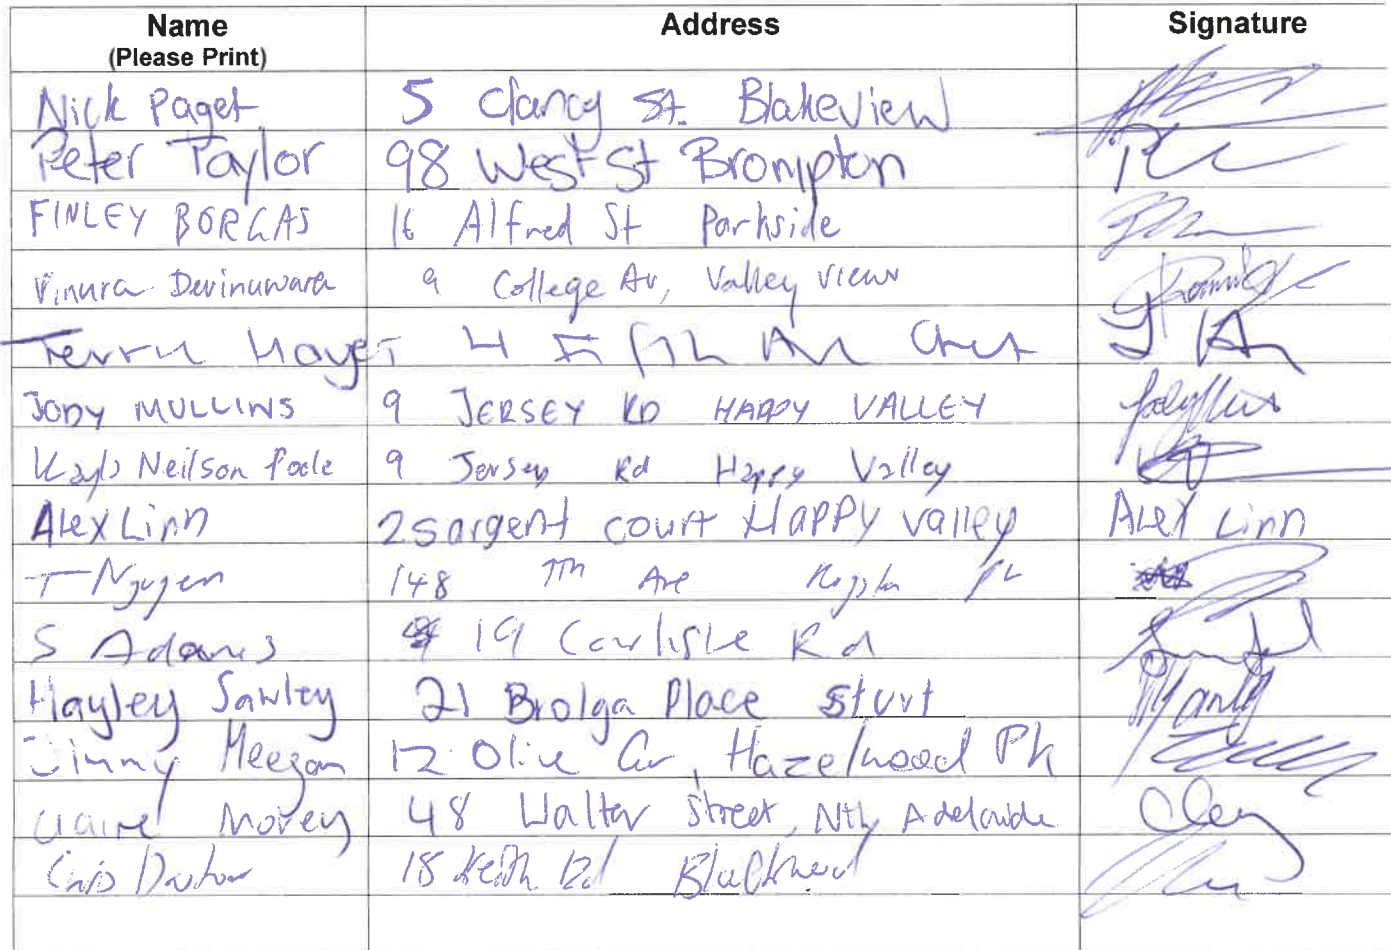 Name Address Signature
(Please Print)
Nick Paget 5 Clancy St. Blakeview
Peter Taylor 98 West St Brompton
FINLEY BORGAS 16 Alfred St Parkside
Vinura Devinuwara 9 College Av, Valley View
4 Fifth
JODY MULLINS 9 JERSEY RD HAPPY VALLEY
Neilson Poole 9 Jersey Rd Happy Valley
Alex Linn 2 Sargent court Happy valley Alex Linn
T Nguyen 148 7th Ave
S Adams 19 Carlisle Rd
Hayley Sawley 21 Brolga Place Sturt
Jimmy Meegan 12 Olive Gr, Hazelwood Pk
Claire Morey 48 Walter Street, Nth Adelaide
18 Keith Rd